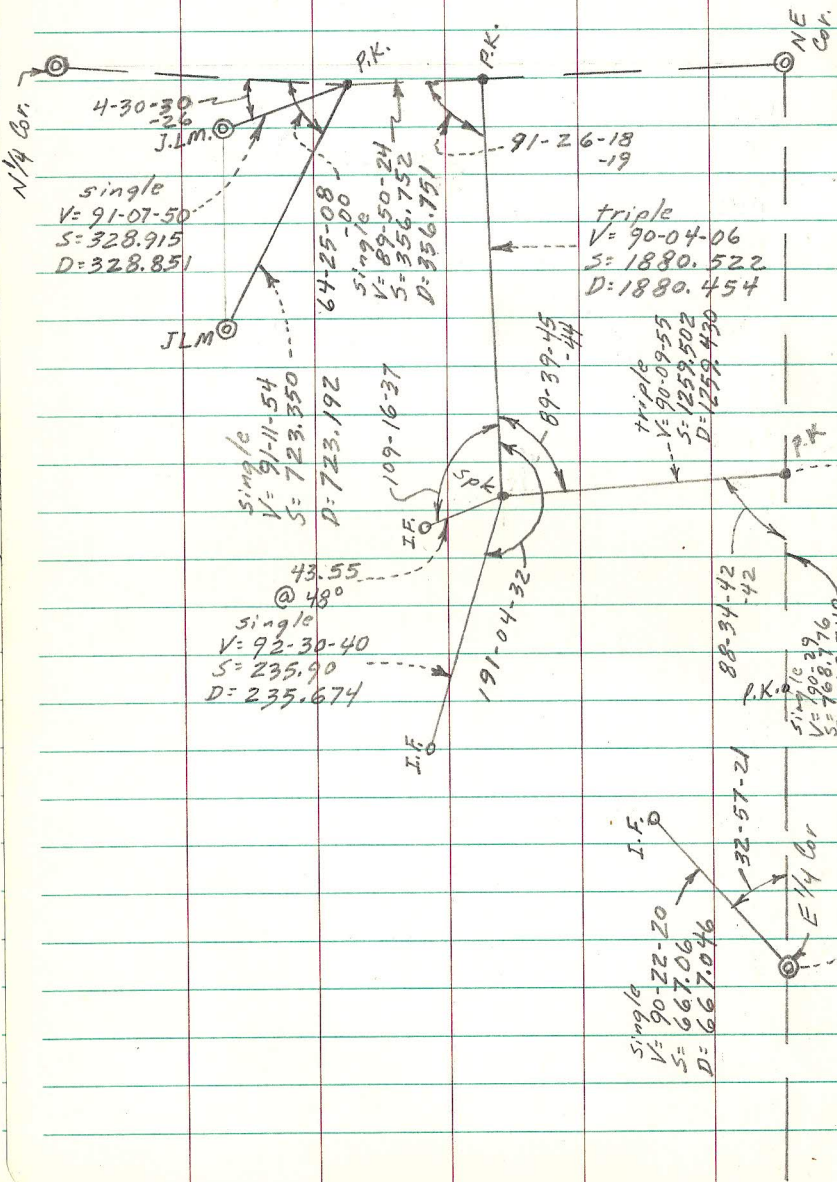 N 1/4 Cor.
P.K.
P.K.
NE
Cor.
4-30-30
-26
J.LM.
single
V= 91-07-50
S= 328.915
D= 328.851
64-25-08
-00
single
V= 89-50-24
S= 356.752
D= 356.751
91-26-18
-19
triple
V= 90-04-06
S= 1880.522
D= 1880.454
JLM
single
V= 91-11-54
S= 723.350
D= 723.192
109-16-37
89-39-45
-44
triple
V= 90-09-55
S= 1259.502
D= 1259.430
P.K
Spk
I.F.
43.55
@ 48°
single
V= 92-30-40
S= 235.90
D= 235.674
191-04-32
I.F.
88-34-42
-42
P.K.
single
V= 90-29
S= 768.776
I.F.
32-57-21
E 1/4 Cor
single
V= 90-22-20
S= 667.06
D= 667.046